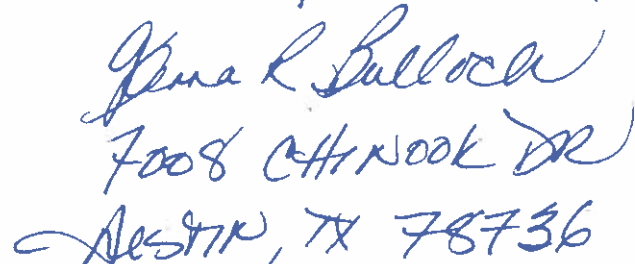 Glenna R Bulloch
7008 CHINOOK DR
AUSTIN, TX 78736